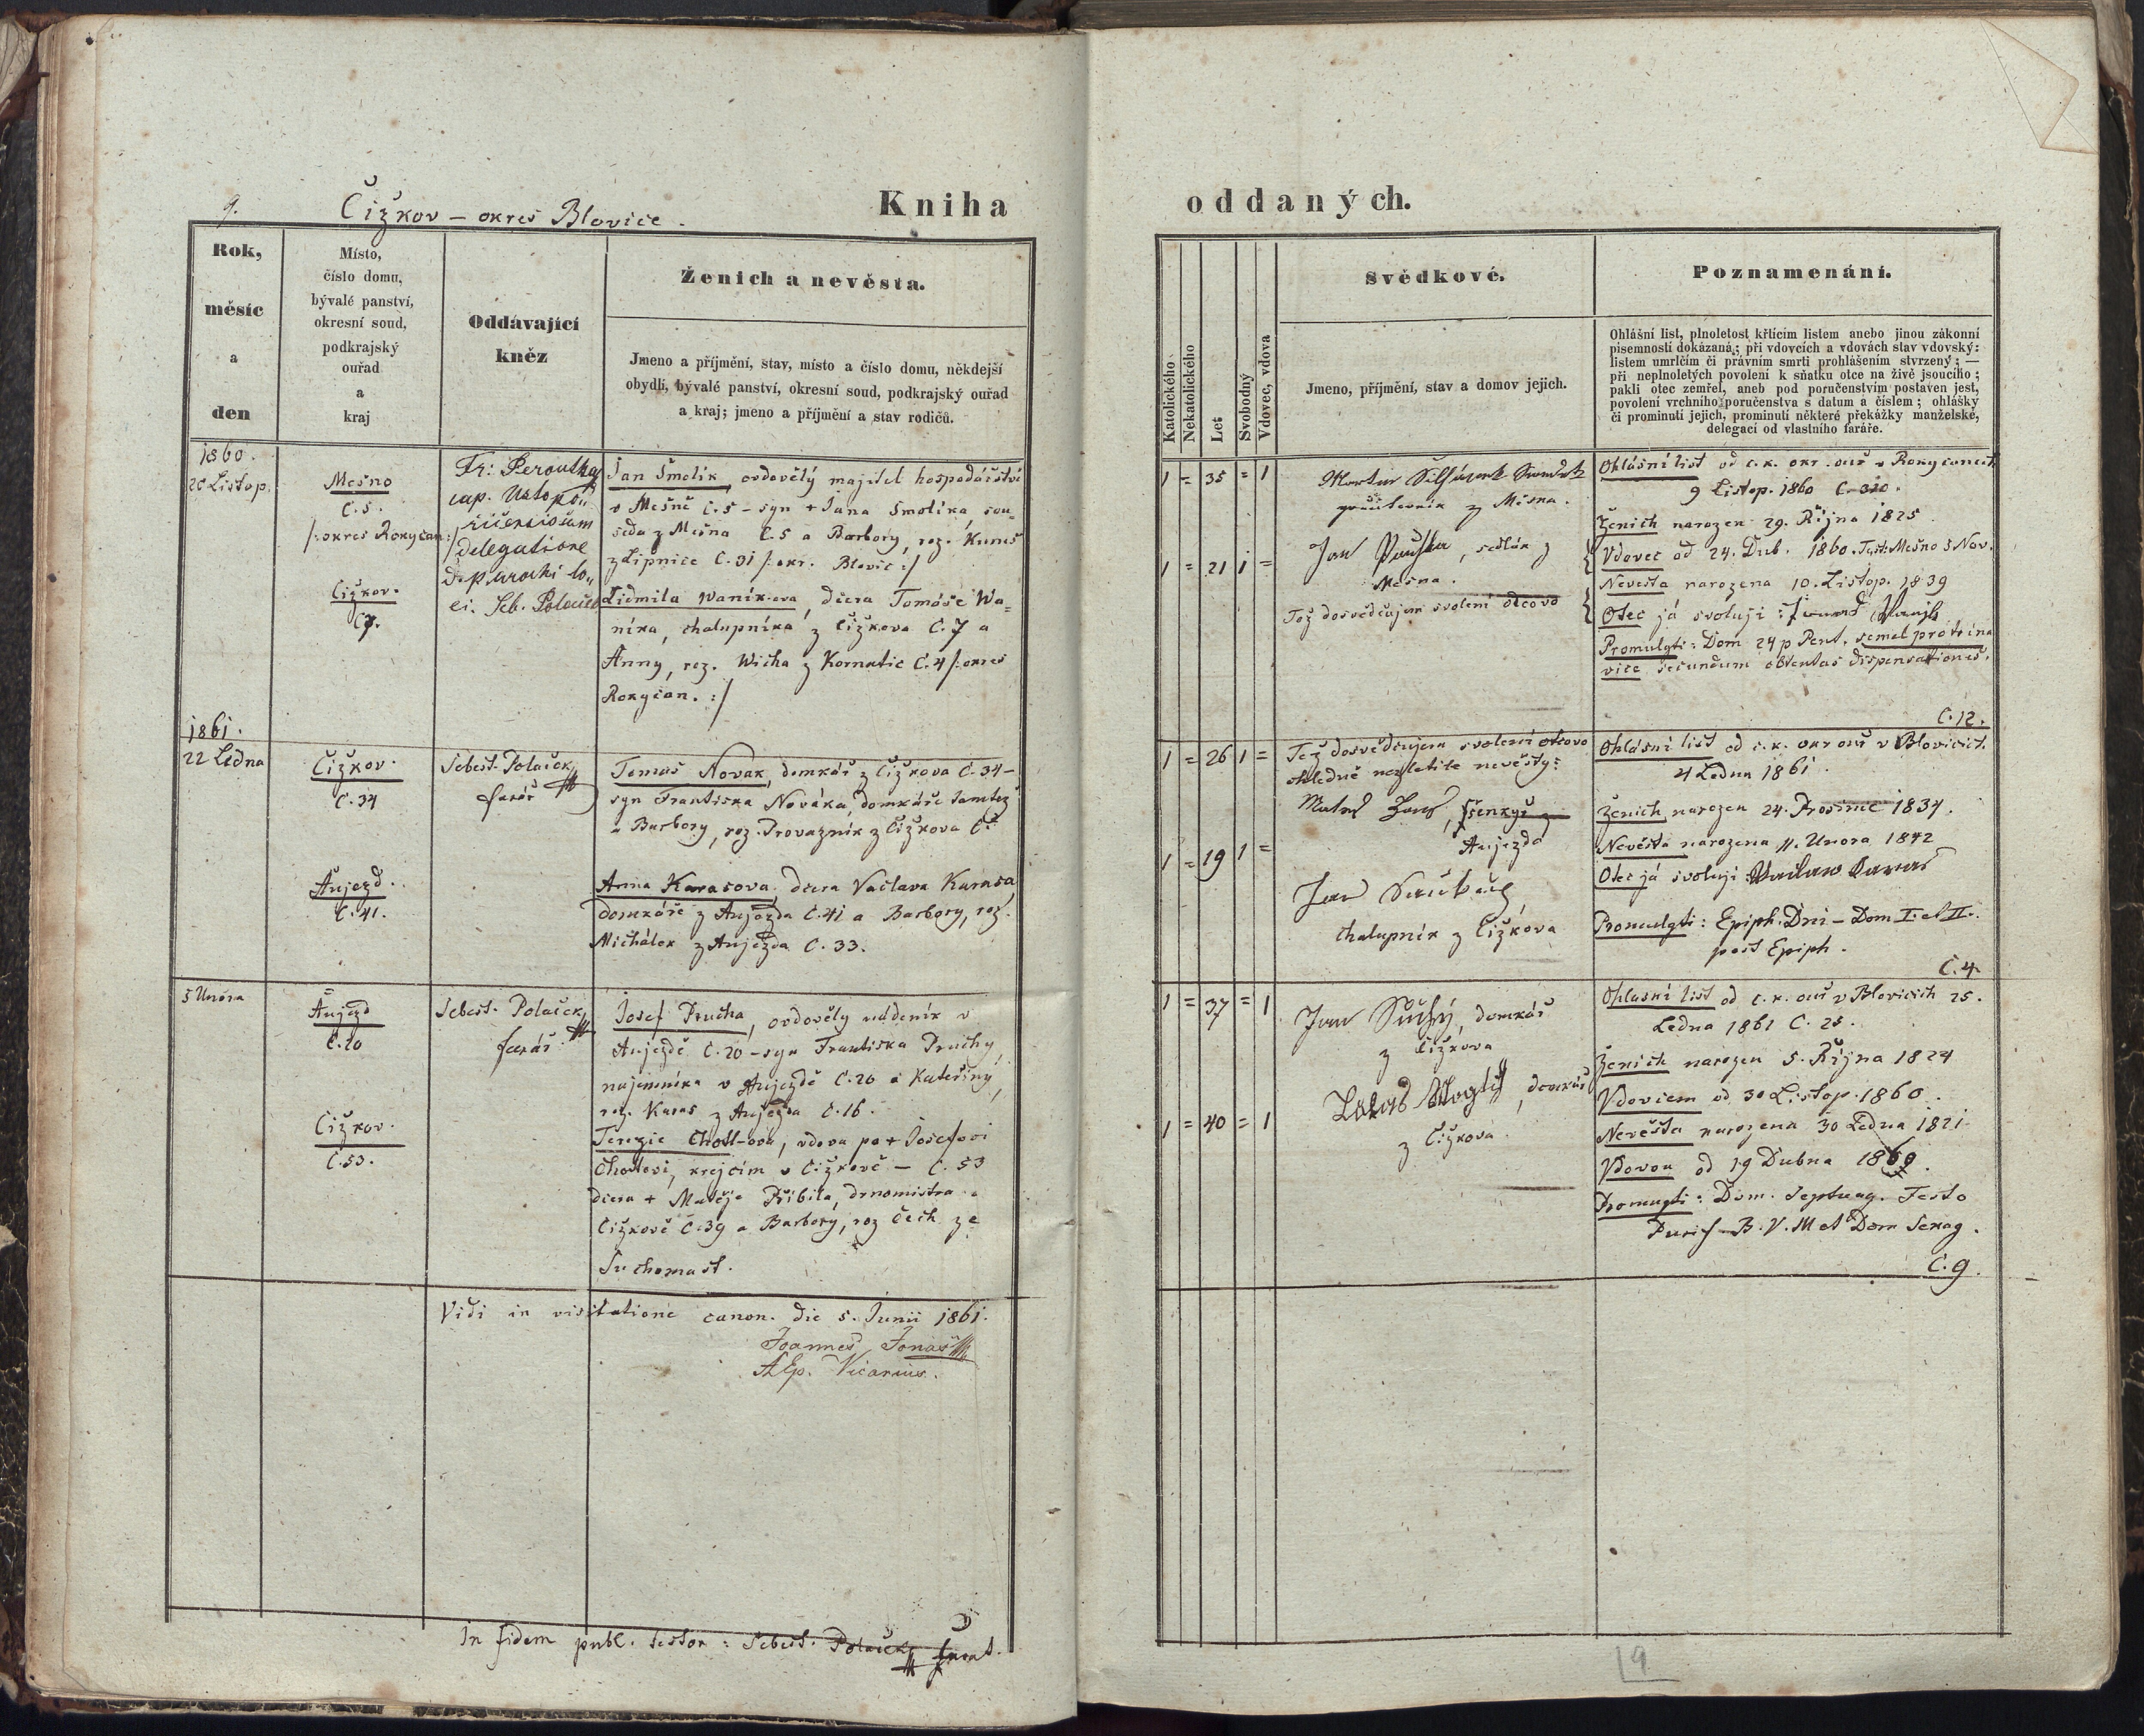 9.
Čižkov – okres Blovice.
Kniha
Rok,
měsíc
a
den
Místo,
číslo domu,
bývalé panství,
okresní soud,
podkrajský
ouřad
a
kraj
Oddávající
kněz
Ženich a nevěsta.
Jmeno a příjmění, stav, místo a číslo domu, někdejší
obydlí, bývalé panství, okresní soud, podkrajský ouřad
a kraj; jmeno a příjmění a stav rodičů.
1860.
20 Listop.
Mešno
C. 5.
/: okres Rokycan :/
Čižkov.
C7.
Fr: Peroutka
cap.
delegatione
parochi lo„
ci. Seb. Polaček
Jan Smolík, ovdovělý majitel hospodářství
v Mešně č. 5 – syn + Jana Smolíka, sou„
seda z Mešna C. 5 a Barbory, roz. Kuneš
z Lipnice C. 31 /: okr. Blovic :/
Lidmila Waník-ova, dcera Tomáše Wa„
níka, chalupníka z Čižkova C. 7 a
Anny, roz. Wicha z Kornatic C. 4 /: okres
Rokycan. :/
1861.
22 Ledna
Čižkov.
C. 34
Aujezd.
C. 41.
Sebest. Polaček
farář
Tomaš Novak, domkář z Čižkova C. 34 –
syn Frantiska Nováka, domkáře tamtež
a Barbory, roz. Provazník z Čižkova C.
Anna Karasova, dcera Vaclava Karasa,
domkáře z Aujezda C. 41 a Barbory, roz.
Michálek z Aujezda C. 33.
5 Unóra
Aujezd
C. 20
Čižkov.
C. 53.
Sebest. Polaček,
farář
Josef Prucha, ovdovělý nádeník v
Aujezdě C. 20 – syn Frantiska Pruchy,
najemníka v Aujezdě C. 20 a Kateřiny,
roz. Karas z Aujezda C. 16.
Terezie Chotl-ova, vdova po + Josefovi
Chotlovi, krejčím v Čižkově – C. 53
dcera + Matěje Přibila, drnomistra v
Čižkově C. 39 a Barbory, roz Čech ze
Suchomast.
Vidi in visitatione canon. die 5. Junii 1861.
Joannes Jonaš
AEp. Vicarius.
In fidem publ. testor: Sebest. Polaček farář.
oddaných.
Katolického
Nekatolického
Let
Svobodný
Vdovec, vdova
Svědkové.
Jmeno, příjmění, stav a domov jejich.
Poznamenání.
Ohlášní list, plnoletost křtícím listem anebo jinou zákonní
písemností dokázaná; při vdovcích a vdovách stav vdovský:
listem umrlčím či právním smrti prohlášením stvrzený; —
při neplnoletých povolení k sňatku otce na živě jsoucího;
pakli otec zemřel, aneb pod poručenstvím postaven jest,
povolení vrchního poručenstva s datum a číslem; ohlášky
či prominutí jejich, prominutí některé překážky manželské,
delegací od vlastního faráře.
1 = 35 = 1
1 = 21 1 =
z Mešna.
Jan, sedlák z
Mešna.
Též dosvědčujem svolení otcovo
Ohlásní list od c. k. okr. ouř v Rokycanech
9 Listop. 1860 C. 320.
Ženich narozen 29. Října 1825
Vdovec od 24. Dub. 1860. Test: Mešno 5 Nov.
Nevěsta narozena 10. Listop. 1839
Otec já svoluji:
Promulgti: Dom 24 p Pent. semel pro trina
vice secundum obtentas dispensationes.
C. 12.
1 = 26 1 =
1 = 19 1 =
Též dosvědčujem svolení otcovo
ohledně nezletilé nevěsty:
šenkýř z
Aujezda
Jan
chalupník z Čižkova
Ohlásní list od c. k. okr ouř v Blovicích.
4 Ledna 1861.
Ženich narozen 24. Prosince 1834.
Nevěsta narozena 11. Unora 1842
Otec já svoluji: Vaclaw Karas
Promulgti: Epiph. Dni – Dom I. et II.
post Epiph.
C. 4.
1 = 37 = 1
1 = 40 = 1
Jan Suchý, domkář
z Čižkova
domkář
z Čižkova.
Ohlasní list od c. k. ouř v Blovicích 25.
Ledna 1861 C. 25.
Ženich narozen 5. Října 1824
Vdovcem od 30 Listop. 1860.
Nevěsta narozena 30 Ledna 1821
Vdovou od 19 Dubna 1860.
Promugti: Dom. Septuag. Festo
Purif B. V. M et Dom Sexag.
C. 9.
19